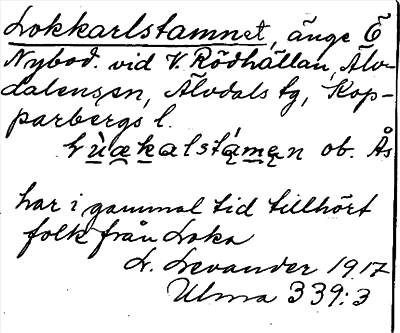 Lokkarlstamnet, änge Ö
Nybod. vid V. Rödhällan, Älv-
dalens sn, Älvdals tg, Kop-
parbergs l.
Lùækalstámen ob. Ås
har i gammal tid tillhört
folk från Loka
L. Levander 1917
Ulma 339:3